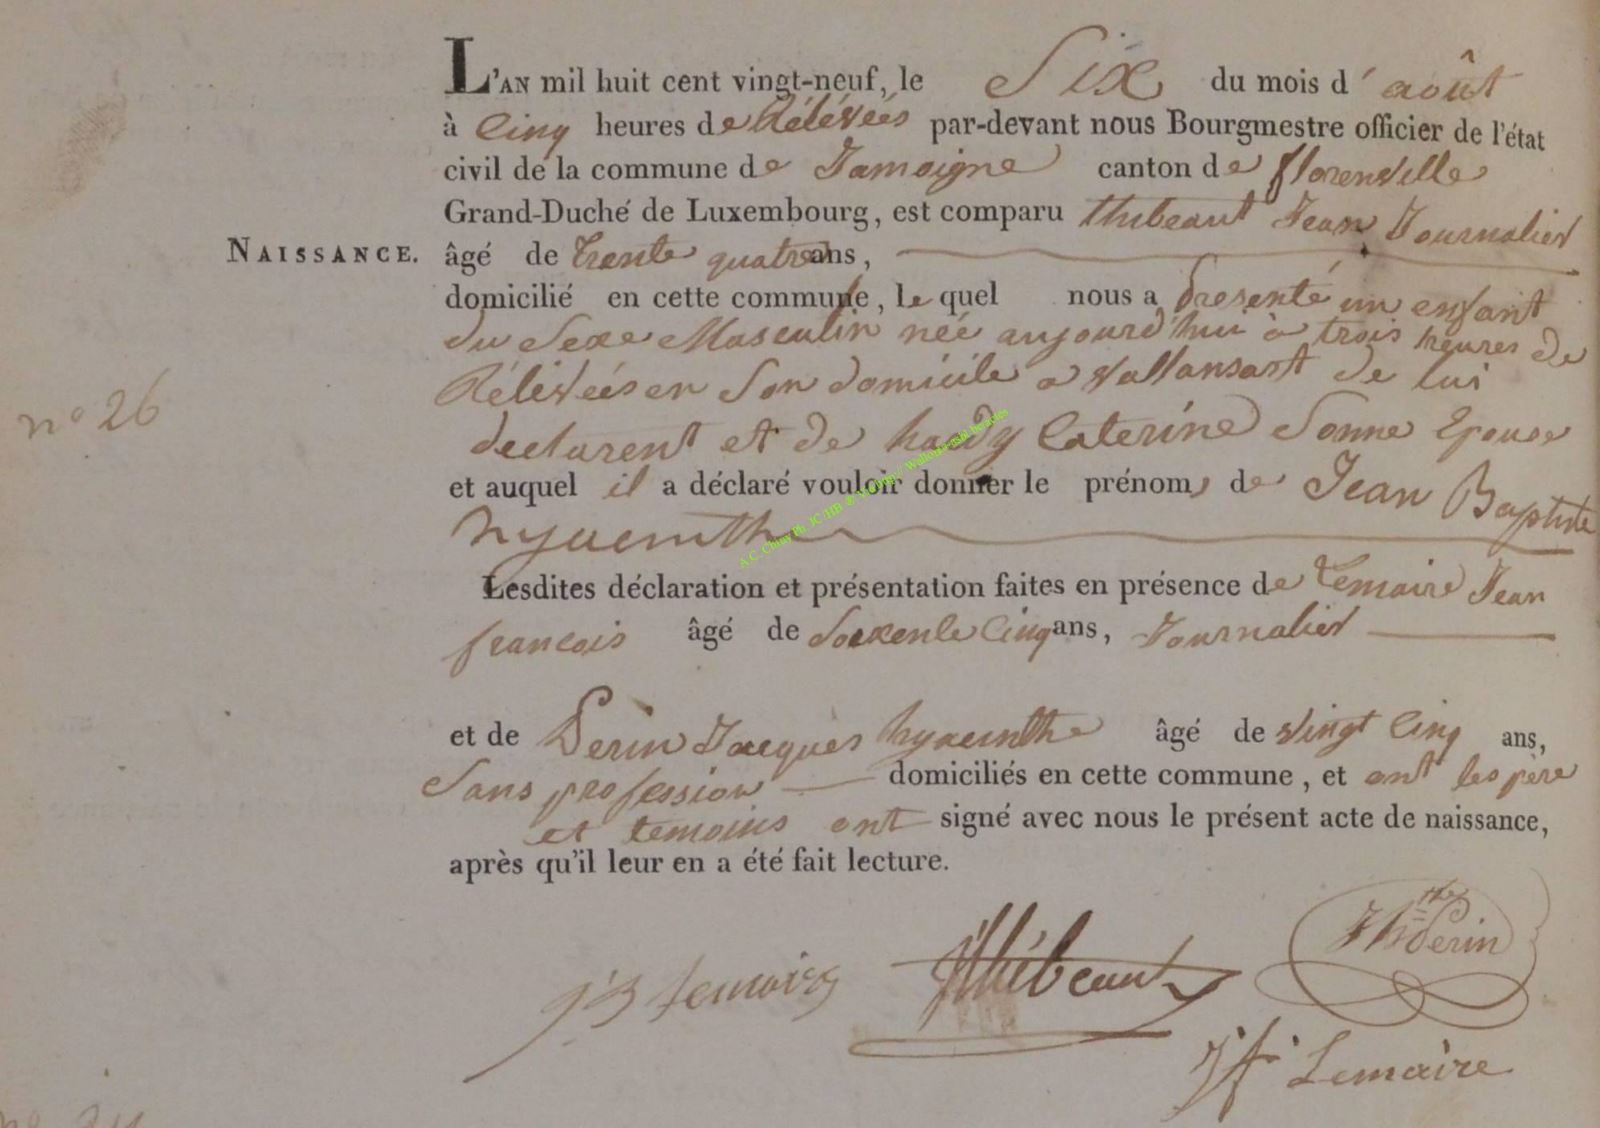 L'AN mil huit cent vingt-neuf, le Six du mois d' août
à Cinq heures de Rélévées par-devant nous Bourgmestre officier de l'état
civil de la commune de Jamoigne canton de florenville
Grand-Duché de Luxembourg, est comparu thibeaut Jean Journalier
NAISSANCE. âgé de trente quatre ans,
domicilié en cette commune, le quel nous a presenté un enfant
du Sexe Masculin née aujourd'hui à trois heures de
n° 26 Rélévées en Son domicile a vallansart de lui
declarent et de hardy Caterine Sonne Epouse
et auquel il a déclaré vouloir donner le prénoms de Jean Baptiste
hyacinthe
A.C. Chiny Ph. JC/HB
Lesdites déclaration et présentation faites en présence de Lemaire Jean
francois âgé de Soixente Cinq ans, Journalier
et de Perin Jacques hyacinthe âgé de vingt Cinq ans,
Sans profession domiciliés en cette commune, et ont les père
et temoins ont signé avec nous le présent acte de naissance,
après qu'il leur en a été fait lecture.
JhthePerin
Thibeaut
Jf Lemaire